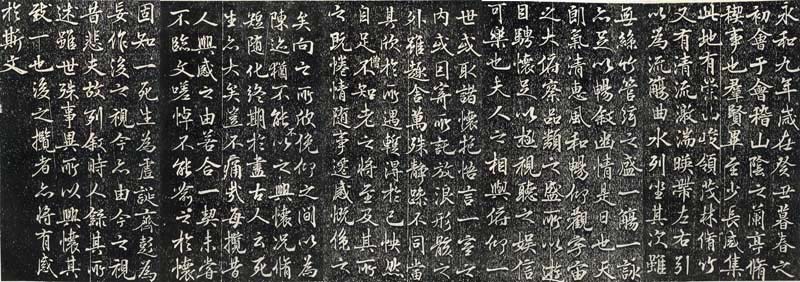 永和九年歲在癸丑暮春之
初會于會稽山陰之蘭亭脩
禊事也群賢畢至少長咸集
此地有崇山峻領茂林脩竹
又有清流激湍暎帶左右引
以為流觴曲水列坐其次雖
無絲竹管弦之盛一觴一詠
亦足以暢敘幽情是日也天
朗氣清惠風和暢仰觀宇宙
之大俯察品類之盛所以遊
目騁懷足以極視聽之娛信
可樂也夫人之相與俯仰一
世或取諸懷抱悟言一室之
內或因寄所託放浪形骸之
外雖趣舍萬殊靜躁不同當
其欣於所遇蹔得於己怏然
自足不知老之將至及其所
之既惓情隨事遷感慨係之
矣向之所欣俛仰之間以為
陳迹猶不能不以之興懷況脩
短隨化終期於盡古人云死
生亦大矣豈不痛哉每攬昔
人興感之由若合一契未嘗
不臨文嗟悼不能喻之於懷
固知一死生為虛誕齊彭殤為
妄作後之視今亦由今之視
昔悲夫故列敘時人錄其所
述雖世殊事異所以興懷其
致一也後之攬者亦將有感
於斯文